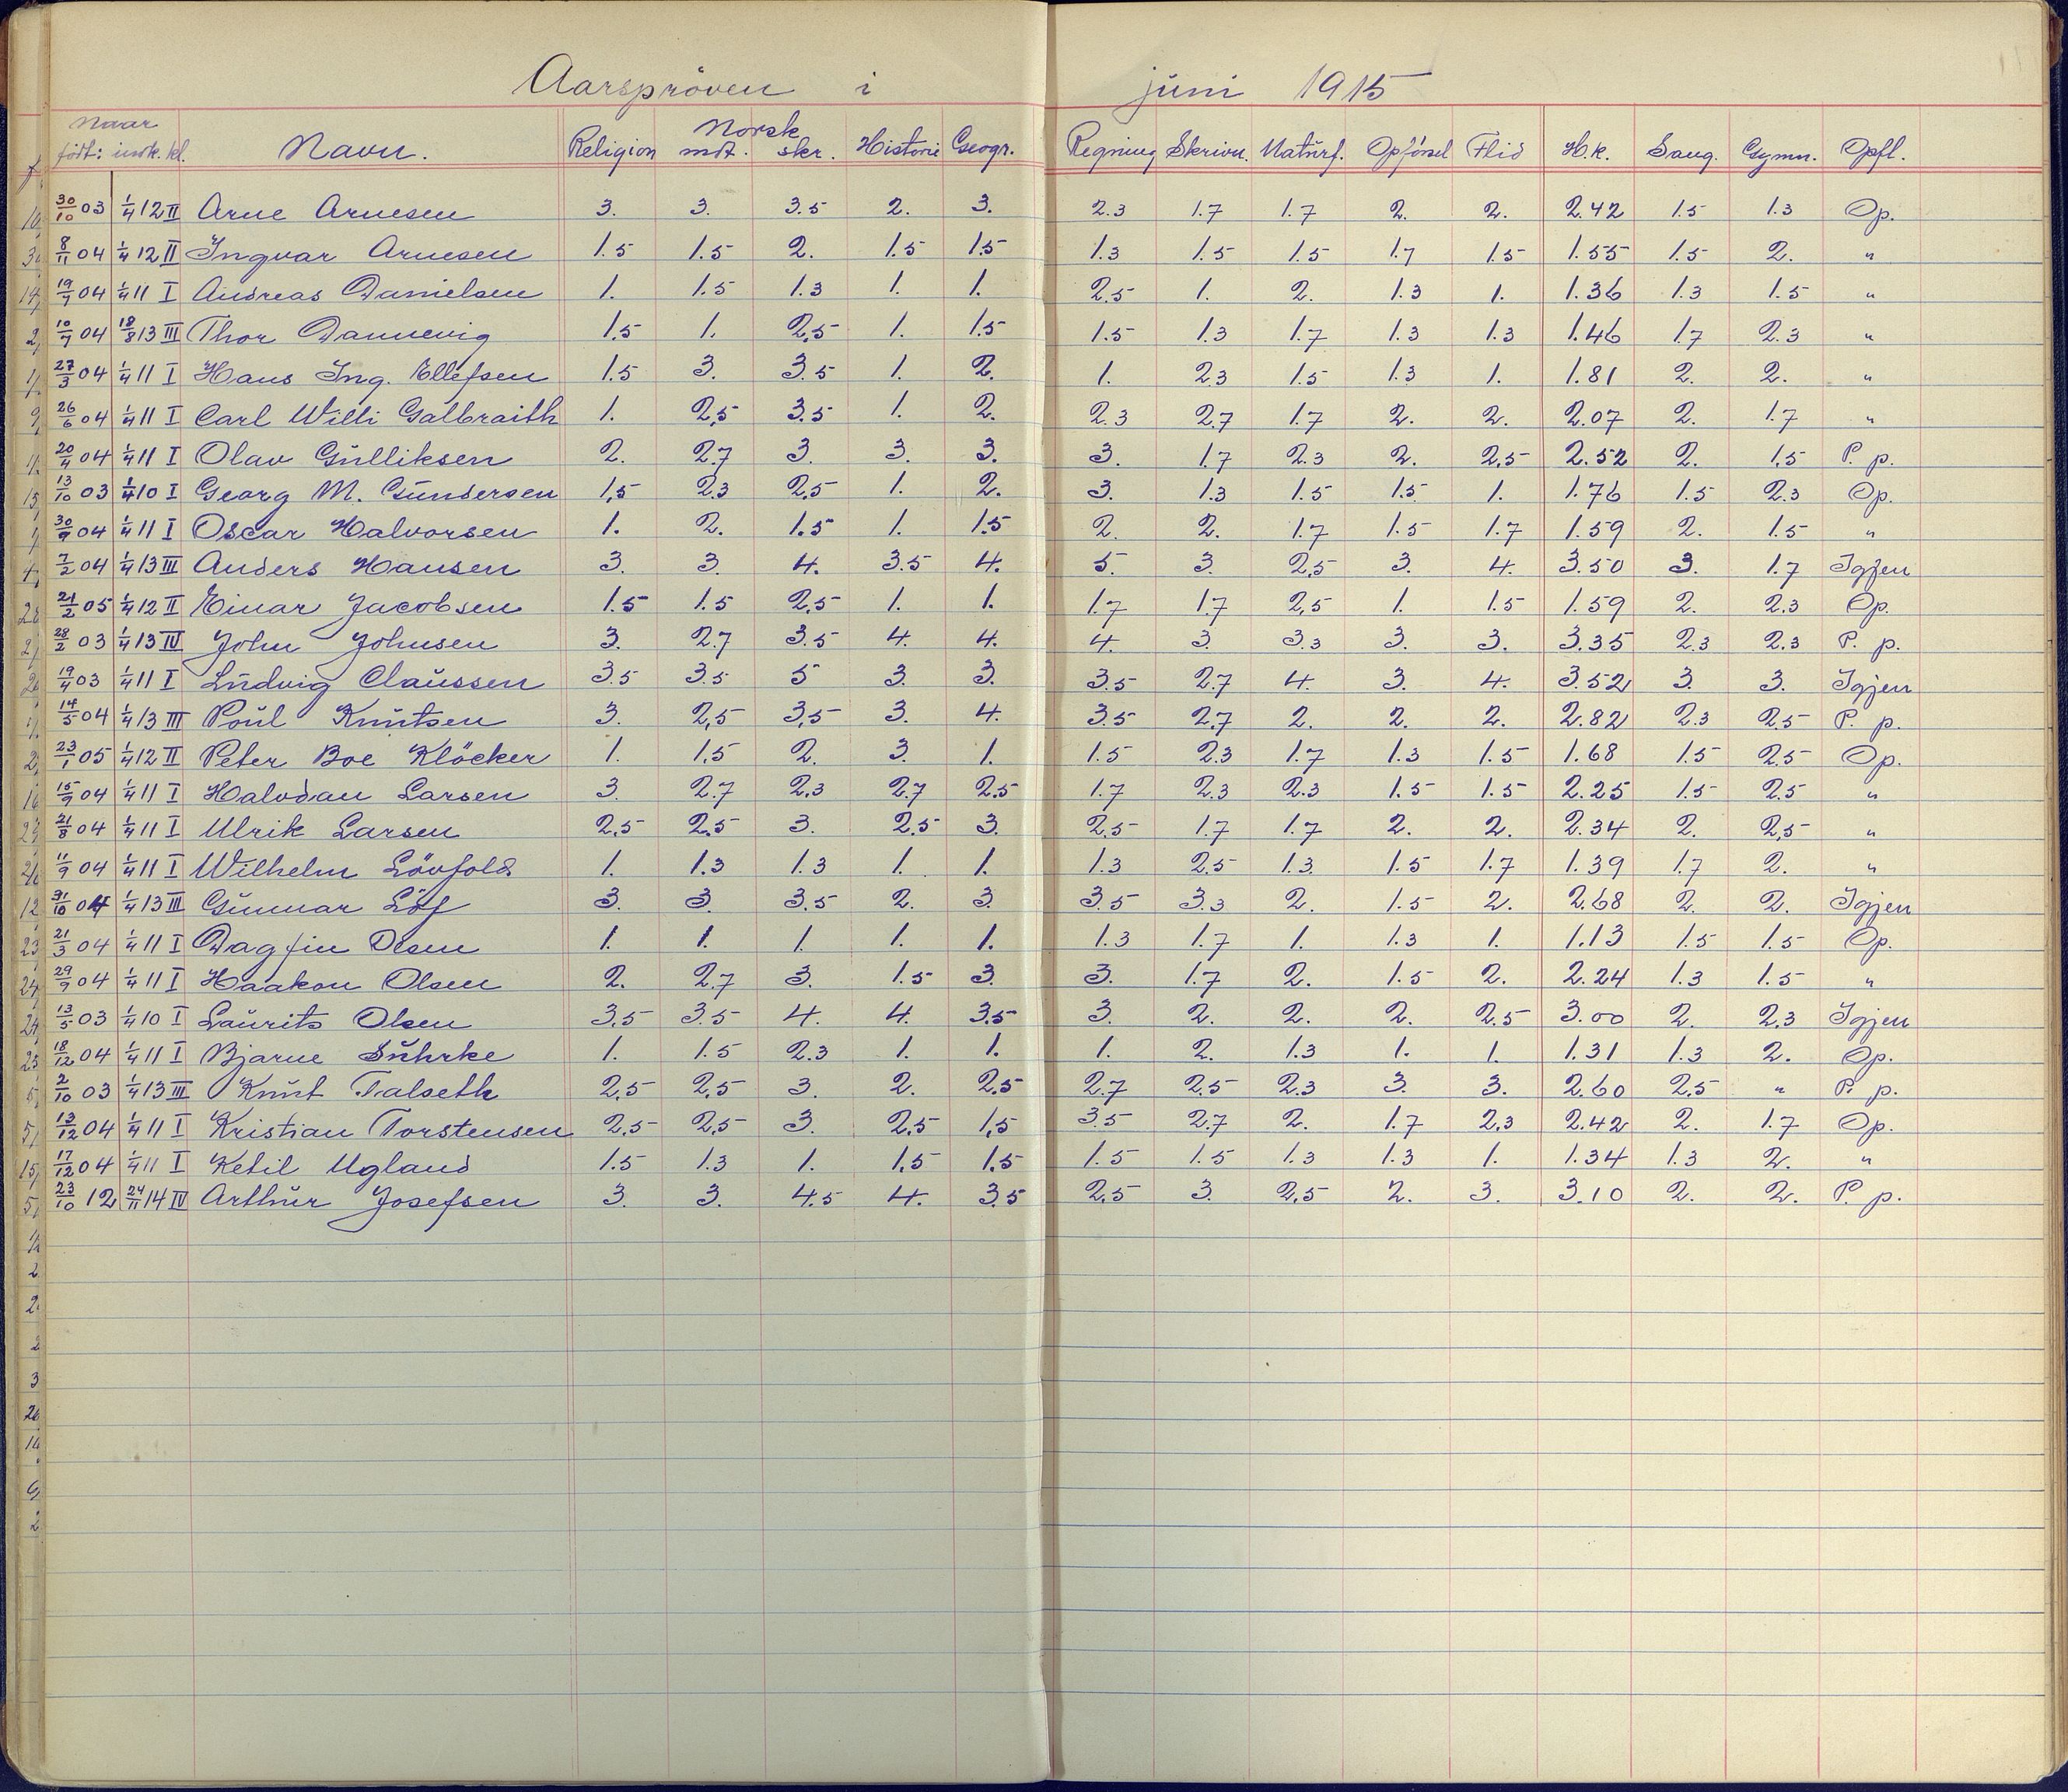 Aarsprøven i juni 1915
Naar Norsk
født: indk. kl. Navn. Religion mdt. skr. Historie Geogr. Regning Skrivn. Naturf. Opførsel Flid H.k. Sang. Gymn. Opfl.
30/10 03 1/4 12 II Arne Arnesen 3. 3. 3.5 2. 3. 2.3 1.7 1.7 2. 2. 2.42 1.5 1.3 Op.
8/11 04 1/4 12 II Ingvar Arnesen 1.5 1.5 2. 1.5 1.5 1.3 1.5 1.5 1.7 1.5 1.55 1.5 2. "
19/7 04 1/4 11 I Andreas Danielsen 1. 1.5 1.3 1. 1. 2.5 1. 2. 1.3 1. 1.36 1.3 1.5 "
10/7 04 18/8 13 III Thor Dannevig 1.5 1. 2.5 1. 1.5 1.5 1.3 1.7 1.3 1.3 1.46 1.7 2.3 "
27/3 04 1/4 11 I Hans Ing. Ellefsen 1.5 3. 3.5 1. 2. 1. 2.3 1.5 1.3 1. 1.81 2. 2. "
26/6 04 1/4 11 I Carl Willi Galbraith 1. 2.5 3.5 1. 2. 2.3 2.7 1.7 2. 2. 2.07 2. 1.7 "
20/4 04 1/4 11 I Olav Gulliksen 2. 2.7 3. 3. 3. 3. 1.7 2.3 2. 2.5 2.52 2. 1.5 P. p.
13/10 03 1/4 10 I Georg M. Gundersen 1.5 2.3 2.5 1. 2. 3. 1.3 1.5 1.5 1. 1.76 1.5 2.3 Op.
30/9 04 1/4 11 I Oscar Halvorsen 1. 2. 1.5 1. 1.5 2. 2. 1.7 1.5 1.7 1.59 2. 1.5 "
7/2 04 1/4 13 III Anders Hansen 3. 3. 4. 3.5 4. 5. 3. 2.5 3. 4. 3.50 3. 1.7 Igjen
21/2 05 1/4 12 II Einar Jacobsen 1.5 1.5 2.5 1. 1. 1.7 1.7 2.5 1. 1.5 1.59 2. 2.3 Op.
28/2 03 1/4 13 IV John Johnsen 3. 2.7 3.5 4. 4. 4. 3. 3.3 3. 3. 3.35 2.3 2.3 P. p.
19/4 03 1/4 11 I Ludvig Claussen 3.5 3.5 5 3. 3. 3.5 2.7 4. 3. 4. 3.52 3. 3. Igjen
14/5 04 1/4 13 III Poul Knutsen 3. 2.5 3.5 3. 4. 3.5 2.7 2. 2. 2. 2.82 2.3 2.5 P. p.
23/1 05 1/4 12 II Peter Boe Kløcker 1. 1.5 2. 3. 1. 1.5 2.3 1.7 1.3 1.5 1.68 1.5 2.5 Op.
15/9 04 1/4 11 I Halvdan Larsen 3. 2.7 2.3 2.7 2.5 1.7 2.3 2.3 1.5 1.5 2.25 1.5 2.5 "
21/8 04 1/4 11 I Ulrik Larsen 2.5 2.5 3. 2.5 3. 2.5 1.7 1.7 2. 2. 2.34 2. 2.5 "
11/9 04 1/4 11 I Wilhelm Løvfold 1. 1.3 1.3 1. 1. 1.3 2.5 1.3. 1.5 1.7 1.39 1.7 2. "
31/10 04 1/4 13 III Gunnar Löf 3. 3. 3.5 2. 3. 3.5 3.3 2. 1.5 2. 2.68 2. 2. Igjen
21/3 04 1/4 11 I Dagfin Olsen 1. 1. 1. 1. 1. 1.3 1.7 1. 1.3 1. 1.13 1.5 1.5 Op.
29/9 04 1/4 11 I Haakon Olsen 2. 2.7 3. 1.5 3. 3. 1.7 2. 1.5 2. 2.24 1.3 1.5 "
13/5 03 1/4 10 I Laurits Olsen 3.5 3.5 4. 4. 3.5 3. 2. 2. 2. 2.5 3.00 2. 2.3 Igjen
18/12 04 1/4 11 I Bjarne Suhrke 1. 1.5 2.3 1. 1. 1. 2. 1.3 1. 1. 1.31 1.3 2. Op.
2/10 03 1/4 13 III Knut Talseth 2.5 2.5 3. 2. 2.5 2.7 2.5 2.3 3. 3. 2.60 2.5 " P. p.
13/12 04 1/4 11 I Kristian Torstensen 2.5 2.5 3. 2.5 1.5 3.5 2.7 2. 1.7 2.3 2.42 2. 1.7 Op.
17/12 04 1/4 11 I Ketil Ugland 1.5 1.3 1. 1.5 1.5 1.5 1.5 1.3 1.3 1. 1.34 1.3 2. "
23/10 12 24/11 14 IV Arthur Josefsen 3. 3. 4.5 4. 3.5 2.5 3. 2.5 2. 3. 3.10 2. 2. P. p.